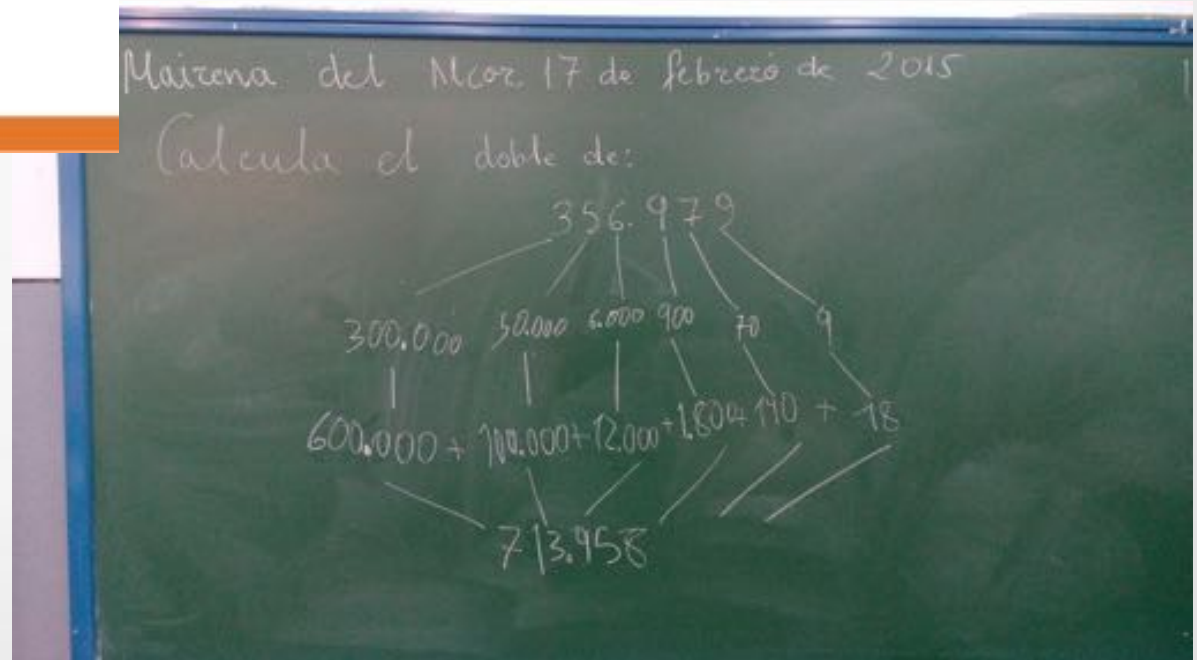 Mairena del Alcor 17 de febrero de 2015
Calcula el doble de:
356.979
300.000 50.000 6.000 900 70 9
600.000 + 100.000 + 12.000 + 1.800 + 140 + 18
713.958